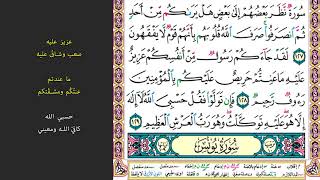 سُورَةٌ نَّظَرَ بَعْضُهُمْ إِلَىٰ بَعْضٍ هَلْ يَرَىٰكُم مِّنْ أَحَدٍ
ثُمَّ ٱنصَرَفُوا۟ صَرَفَ ٱللَّهُ قُلُوبَهُم بِأَنَّهُمْ قَوْمٌ لَّا يَفْقَهُونَ
١٢٧ لَقَدْ جَآءَكُمْ رَسُولٌ مِّنْ أَنفُسِكُمْ عَزِيزٌ
عَلَيْهِ مَا عَنِتُّمْ حَرِيصٌ عَلَيْكُم بِٱلْمُؤْمِنِينَ
رَءُوفٌ رَّحِيمٌ ١٢٨ فَإِن تَوَلَّوْا۟ فَقُلْ حَسْبِىَ ٱللَّهُ لَآ إِلَٰهَ
إِلَّا هُوَ عَلَيْهِ تَوَكَّلْتُ وَهُوَ رَبُّ ٱلْعَرْشِ ٱلْعَظِيمِ ١٢٩
سُورَةُ يُونُسَ
عزيز عليه
صعب وشاق عليه
ما عنتم
عنتكم ومشقتكم
حسبي الله
كافيّ الله ومعيني